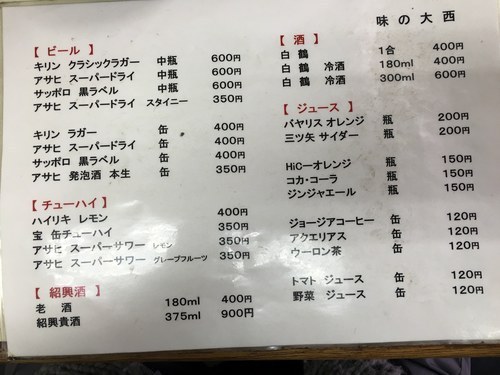 味の大西
【 ビール 】
キリン クラシックラガー 中瓶 600円
アサヒ スーパードライ 中瓶 600円
サッポロ 黒ラベル 中瓶 600円
アサヒ スーパードライ スタイニー 350円
キリン ラガー 缶 400円
アサヒ スーパードライ 缶 400円
サッポロ 黒ラベル 缶 400円
アサヒ 発泡酒 本生 缶 350円
【 チューハイ 】
ハイリキ レモン 400円
宝 缶チューハイ 350円
アサヒ スーパーサワー レモン 350円
アサヒ スーパーサワー グレープフルーツ 350円
【 紹興酒 】
老 酒 180ml 400円
紹興貴酒 375ml 900円
【 酒 】
白 鶴 1合 400円
白 鶴 冷酒 180ml 400円
白 鶴 冷酒 300ml 600円
【 ジュース 】
バヤリス オレンジ 瓶 200円
三ツ矢 サイダー 瓶 200円
HiCーオレンジ 瓶 150円
コカ・コーラ 瓶 150円
ジンジャエール 瓶 150円
ジョージアコーヒー 缶 120円
アクエリアス 缶 120円
ウーロン茶 缶 120円
トマト ジュース 缶 120円
野菜 ジュース 缶 120円